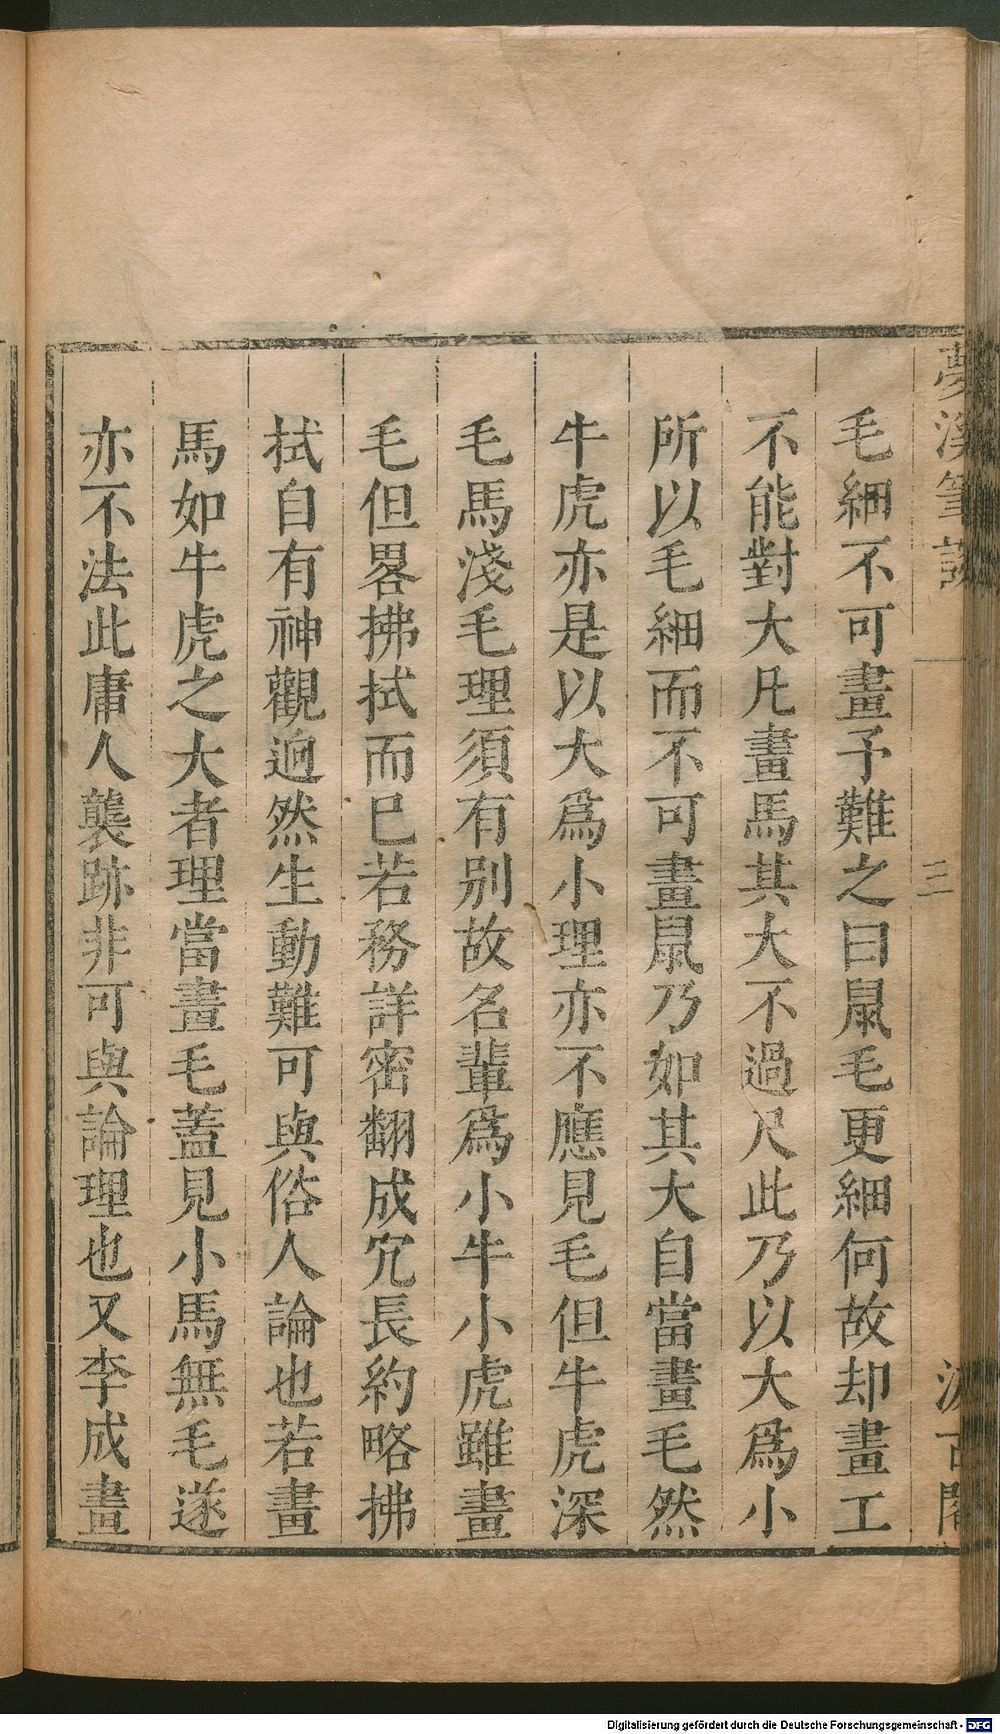 夢溪筆談
三
汲古閣
毛細不可畫予難之曰鼠毛更細何故却畫工
不能對大凡畫馬其大不過尺此乃以大爲小
所以毛細而不可畫鼠乃如其大自當畫毛然
牛虎亦是以大爲小理亦不應見毛但牛虎深
毛馬淺毛理須有别故名輩爲小牛小虎雖畫
毛但畧拂拭而巳若務詳密翻成冗長約略拂
拭自有神觀逈然生動難可與俗人論也若畫
馬如牛虎之大者理當畫毛蓋見小馬無毛遂
亦不法此庸人襲跡非可與論理也又李成畫
Digitalisierung gefördert durch die Deutsche Forschungsgemeinschaft - DFG